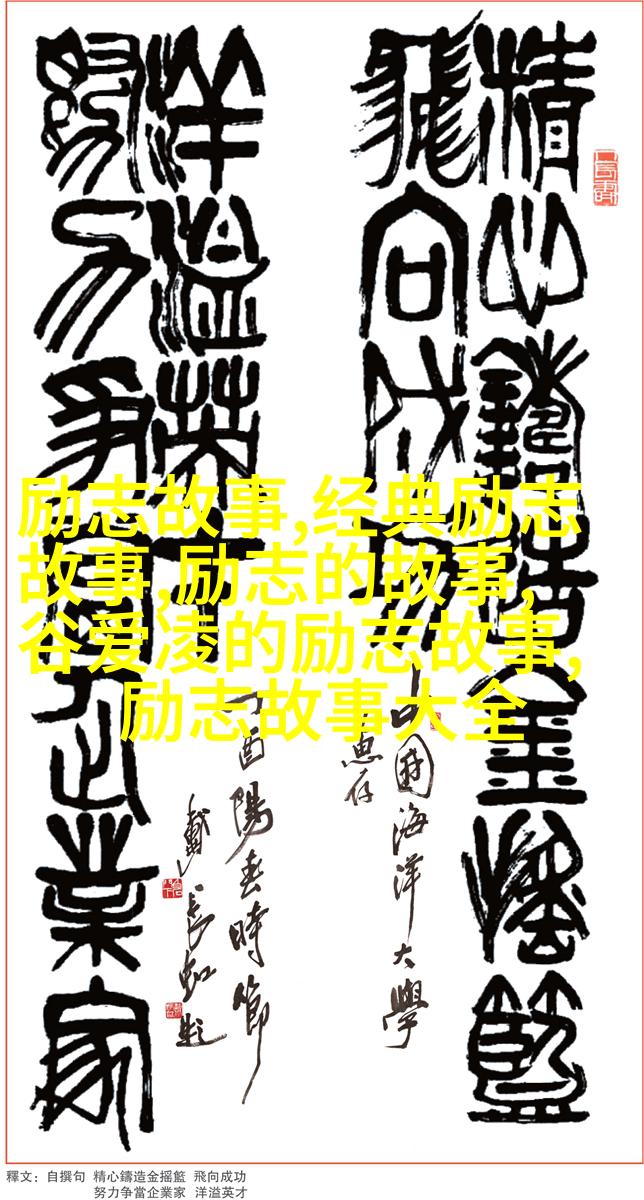 精心鑄造金搖籃
飛向成功
中國海洋大學
惠存
努力爭當企業家
洋溢英才
丁酉陽春時節
戴長虹題
励志故事,经典励志
故事,励志的故事,
谷爱凌的励志故事,
励志故事大全
釋文：自撰句 精心鑄造金摇籃 飛向成功
努力争當企業家 洋溢英才